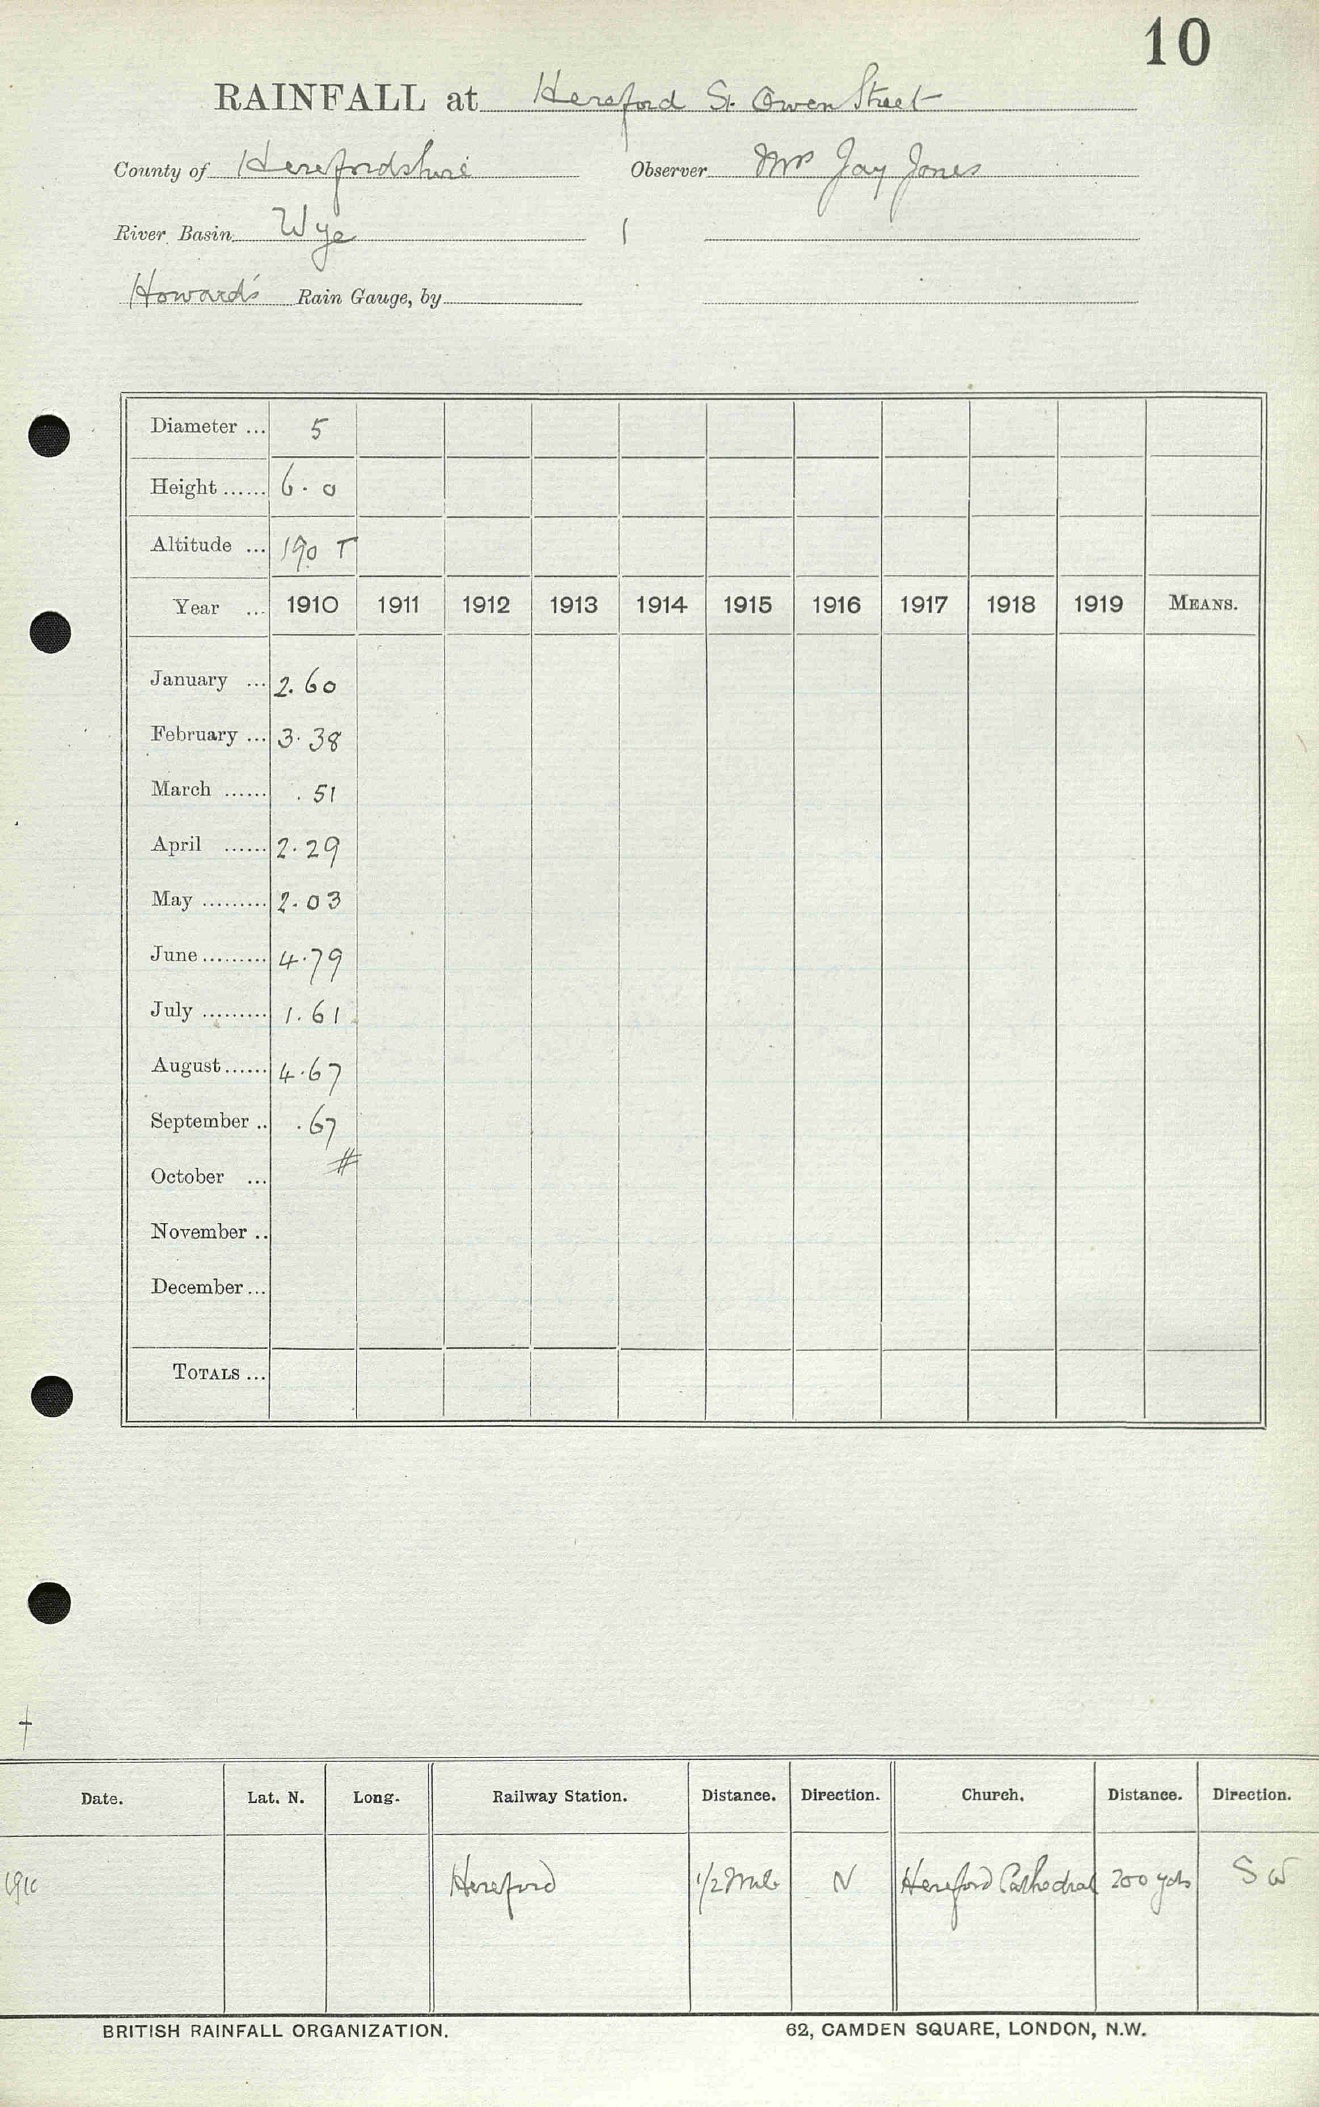 10
RAINFALL at Hereford St. Owen Street
County of Herefordshire Observer Mrs Jay Jones
River Basin Wye
Howard's Rain Gauge, by
Diameter ... 5
Height ...... 6.0
Altitude ... 190 T
Year ... 1910 1911 1912 1913 1914 1915 1916 1917 1918 1919 MEANS.
January ... 2.60
February ... 3.38
March ...... .51
April ...... 2.29
May ......... 2.03
June ......... 4.79
July ......... 1.61
August ...... 4.67
September .. .67
#
October ...
November ..
December ...
TOTALS ...
†
Date. Lat. N. Long. Railway Station. Distance. Direction. Church. Distance. Direction.
1910 Hereford 1/2 Mile N Hereford Cathedral 200 yds SW
BRITISH RAINFALL ORGANIZATION. 62, CAMDEN SQUARE, LONDON, N.W.